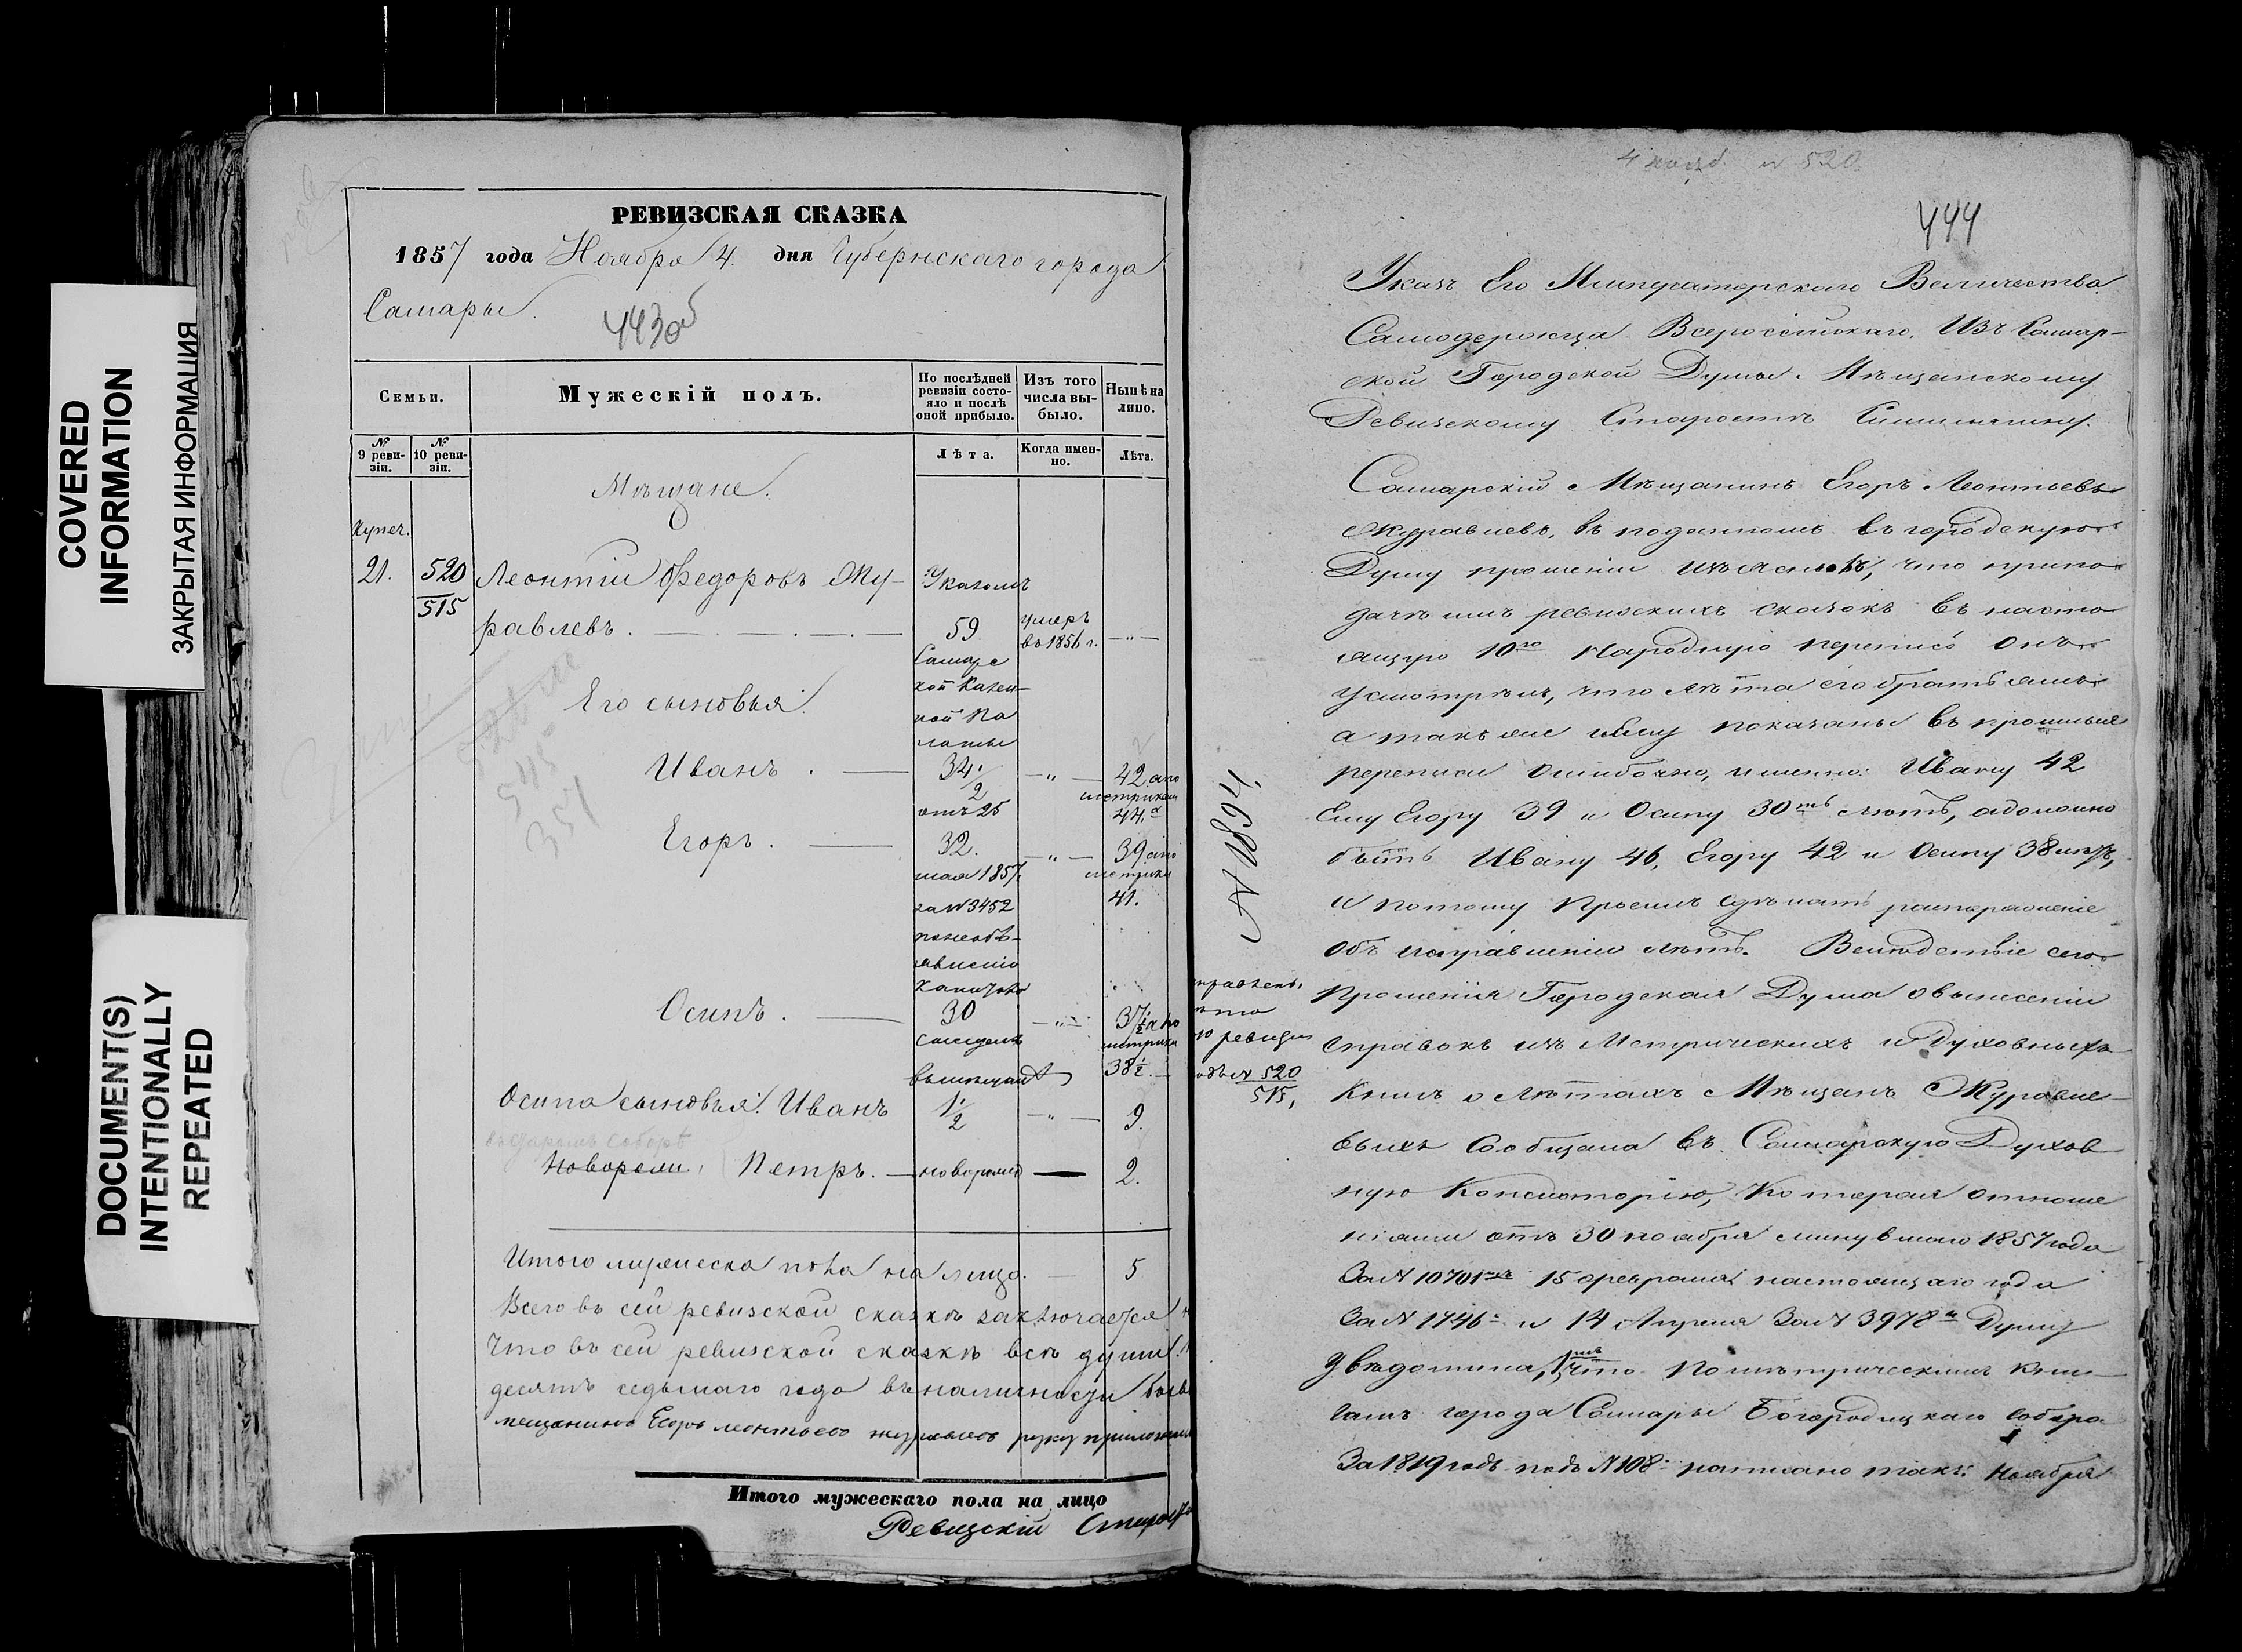 COVERED
INFORMATION
ЗАКРЫТАЯ ИНФОРМАЦИЯ
DOCUMENT(S)
INTENTIONALLY
REPEATED
РЕВИЗСКАЯ СКАЗКА
1857 года Ноября 4 дня Губернскаго города
Самары.
443об
Семьи.
Мужескій полъ.
По послѣдней
ревизіи состо-
яло и послѣ
оной прибыло.
Изъ того
числа вы-
было.
Нынѣ на
лицо.
№
9 реви-
зіи.
№
10 реви-
зіи.
Лѣта.
Когда имен-
но.
Лѣта.
Мѣщане.
Купеч.
21. 520 Леонтій Федоровъ Жу- Указомъ
515
равлевъ. 59 умеръ
въ 1856 г.
Самарс
кой Казен-
ной Па
латы
Его сыновья:
Иванъ. 34. 42 а по
2 метрикам
отъ 25 44.
Егоръ. 32. 39 а по
мая 1857 метрики
за № 3452 41.
Осипъ. 30 37½ а по
метрики
38½.
Осипа сыновья: Иванъ 1/2 9.
Петръ. новорожд 2.
Итого мужеска пола на лицо. 5
Всего въ сей ревизской сказкѣ заключается
Что въ сей ревизской сказкѣ всѣ души
десятъ седьмаго года въ наличности
мещанинъ Егоръ леонтьевъ журавлевъ руку приложилъ
Итого мужескаго пола на лицо
Ревизскій Старо
4 нояб. № 520
444
Указъ Его Императорскаго Величества
Самодержца Всероссійскаго. Изъ Самар-
ской Городской Думы. Мѣщанскому
Ревизскому Старостѣ
Самарскій Мѣщанинъ Егоръ Леонтьевъ
Журавлевъ, въ поданномъ въ городскую
Думу прошеніи изъяснилъ, что припо-
дачѣ имъ ревизскихъ сказокъ въ насто
ящую 10ю Народную перепись онъ
усмотрѣлъ, что лѣта его братьямъ
а такъ же и ему показаны въ прошлыя
переписи ошибочно, именно: Ивану 42
Ему Егору 39 и Осипу 30ть лѣтъ, а должно
быть Ивану 46, Егору 42 и Осипу 38 лѣтъ,
и потому просилъ сдѣлать распоряженіе
объ исправленіи лѣтъ. Вслѣдствіе сего
прошенія Городская Дума о вынесеніи
справокъ изъ Метрическихъ и Духовныхъ
книгъ о лѣтахъ Мѣщанъ Журавле-
выхъ сообщала въ Самарскую Духов
ную Консисторію, которая отноше
ніями отъ 30 ноября минувшаго 1857 года
За № 10701мъ 15 февраля настоящаго года
За № 1746 и 14 Апреля За № 3978 Думу
увѣдомила, что по метрическимъ кни-
гамъ города Самары Богородицкаго собора
За 1819 годъ подъ № 108 написано такъ: Ноября
№ 1894.
ревизіи
520
515,